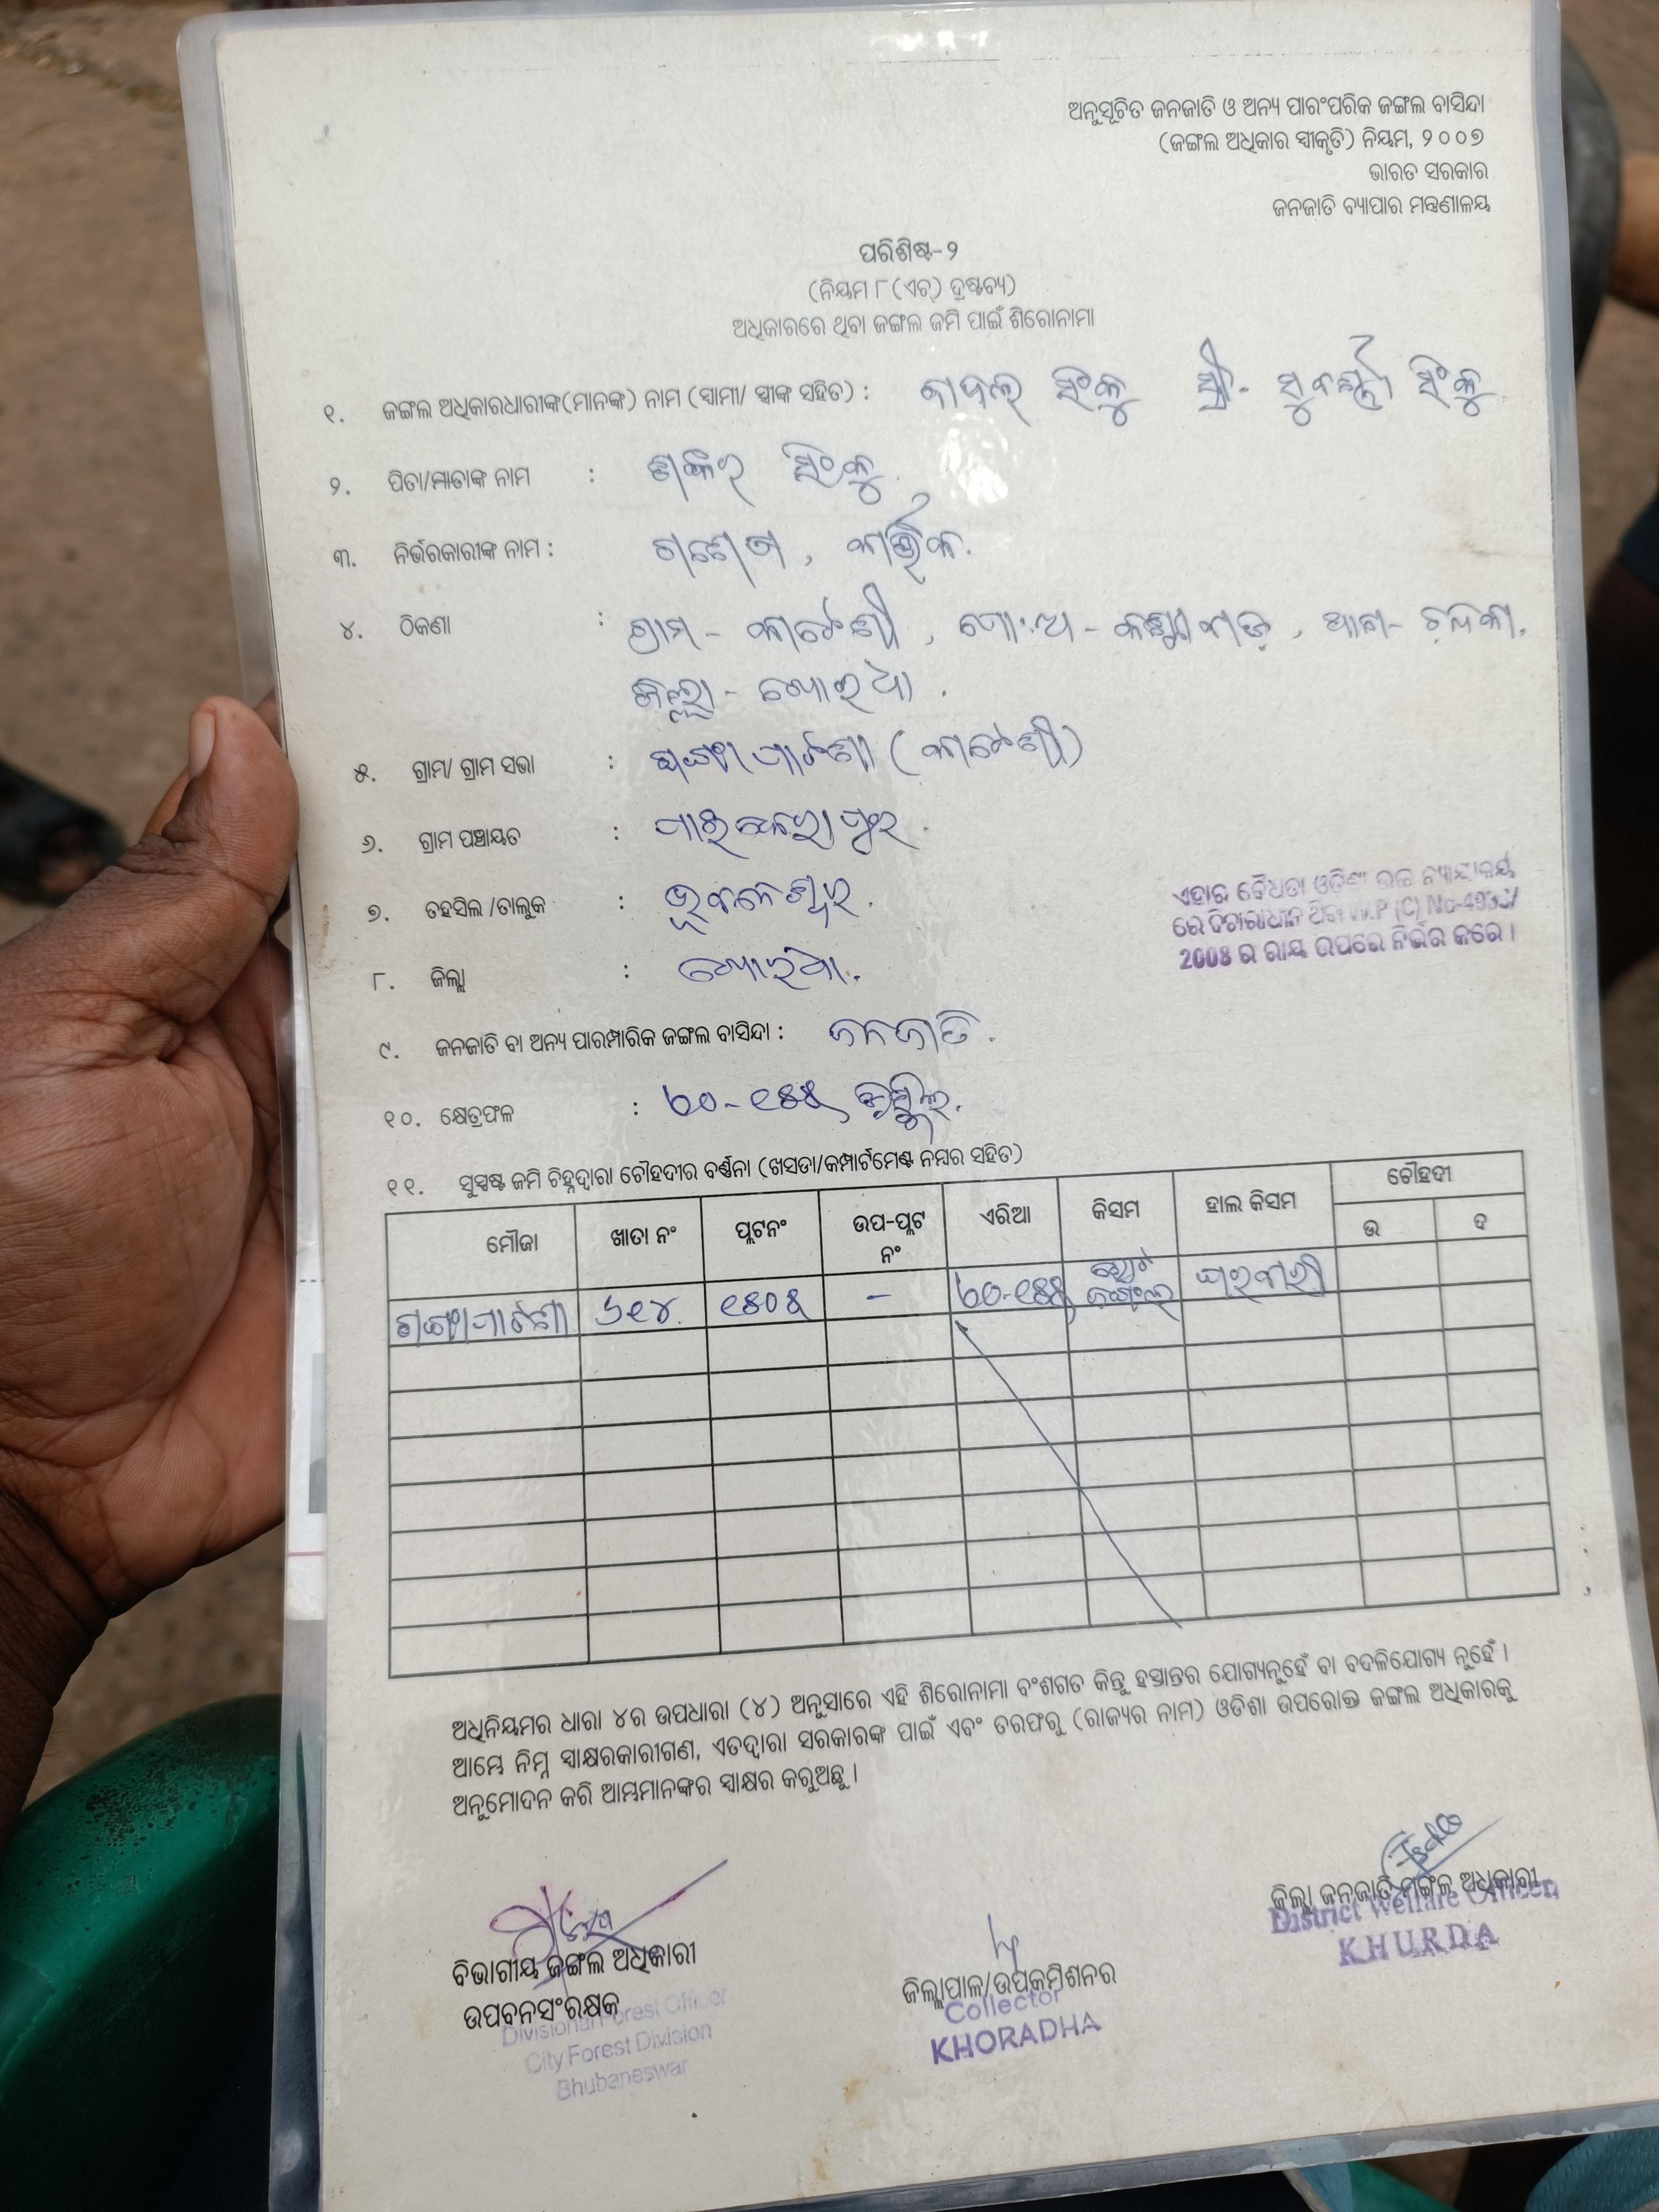 ଅନୁସୂଚିତ ଜନଜାତି ଓ ଅନ୍ୟ ପାରଂପରିକ ଜଙ୍ଗଲ ବାସିନ୍ଦା
(ଜଙ୍ଗଲ ଅଧିକାର ସ୍ୱୀକୃତି) ନିୟମ, ୨୦୦୭
ଭାରତ ସରକାର
ଜନଜାତି ବ୍ୟାପାର ମନ୍ତ୍ରଣାଳୟ
ପରିଶିଷ୍ଟ-୨
(ନିୟମ ୮(ଏଚ୍) ଦ୍ରଷ୍ଟବ୍ୟ)
ଅଧିକାରରେ ଥିବା ଜଙ୍ଗଲ ଜମି ପାଇଁ ଶିରୋନାମା
୧. ଜଙ୍ଗଲ ଅଧିକାରଧାରୀଙ୍କ(ମାନଙ୍କ) ନାମ (ସ୍ୱାମୀ/ ସ୍ତ୍ରୀଙ୍କ ସହିତ) : ସିଂକୁ ସ୍ତ୍ରୀ. ସୁବର୍ଣ୍ଣା ସିଂକୁ
୨. ପିତା/ମାତାଙ୍କ ନାମ : ଶଙ୍କର ସିଂକୁ.
୩. ନିର୍ଭରକାରୀଙ୍କ ନାମ : ଗଣେଶ, କାର୍ତ୍ତିକ.
୪. ଠିକଣା : ଗ୍ରାମ - , ପୋ:ଅ - , ଥାନା - ଚନ୍ଦକା,
ଜିଲ୍ଲା - ଖୋରଧା.
୫. ଗ୍ରାମ/ ଗ୍ରାମ ସଭା :
୬. ଗ୍ରାମ ପଞ୍ଚାୟତ :
୭. ତହସିଲ /ତାଲୁକ : ଭୂବନେଶ୍ୱର.
୮. ଜିଲ୍ଲା : ଖୋରଧା.
ଏହାର ବୈଧତା ଓଡିଶା ଉଚ୍ଚ ନ୍ୟାୟାଳୟ
ରେ ବିଚାରାଧୀନ ଥିବା W.P (C) No-
2008 ର ରାୟ ଉପରେ ନିର୍ଭର କରେ ।
୯. ଜନଜାତି ବା ଅନ୍ୟ ପାରମ୍ପାରିକ ଜଙ୍ଗଲ ବାସିନ୍ଦା : ଜନଜାତି.
୧୦. କ୍ଷେତ୍ରଫଳ : ଡିସ୍ମିଲ.
୧୧. ସୁସ୍ପଷ୍ଟ ଜମି ଚିହ୍ନଦ୍ୱାରା ଚୌହଦୀର ବର୍ଣ୍ଣନା (ଖସଡା/କମ୍ପାର୍ଟମେଣ୍ଟ ନମ୍ବର ସହିତ)
ମୌଜା ଖାତା ନଂ ପ୍ଲଟନଂ ଉପ-ପ୍ଲଟ ନଂ ଏରିଆ କିସମ ହାଲ କିସମ ଚୌହଦୀ
ଉ ଦ
୬୧୪ ୧୫୦୫ - ଛୋଟ ଜଙ୍ଗଲ ଘରବାରୀ
ଅଧିନିୟମର ଧାରା ୪ର ଉପଧାରା (୪) ଅନୁସାରେ ଏହି ଶିରୋନାମା ବଂଶଗତ କିନ୍ତୁ ହସ୍ତାନ୍ତର ଯୋଗ୍ୟନୁହେଁ ବା ବଦଳିଯୋଗ୍ୟ ନୁହେଁ ।
ଆମ୍ଭେ ନିମ୍ନ ସ୍ୱାକ୍ଷରକାରୀଗଣ, ଏତଦ୍ୱାରା ସରକାରଙ୍କ ପାଇଁ ଏବଂ ତରଫରୁ (ରାଜ୍ୟର ନାମ) ଓଡିଶା ଉପରୋକ୍ତ ଜଙ୍ଗଲ ଅଧିକାରକୁ
ଅନୁମୋଦନ କରି ଆମ୍ଭମାନଙ୍କର ସ୍ୱାକ୍ଷର କରୁଅଛୁ ।
ବିଭାଗୀୟ ଜଙ୍ଗଲ ଅଧିକାରୀ
ଉପବନସଂରକ୍ଷକ
Divisional Forest Officer
City Forest Division
Bhubaneswar
ଜିଲ୍ଲାପାଳ/ଉପକମିଶନର
Collector
KHORADHA
ଜିଲ୍ଲା ଜନଜାତି ମଙ୍ଗଳ ଅଧିକାରୀ
District Welfare Officer
KHURDA